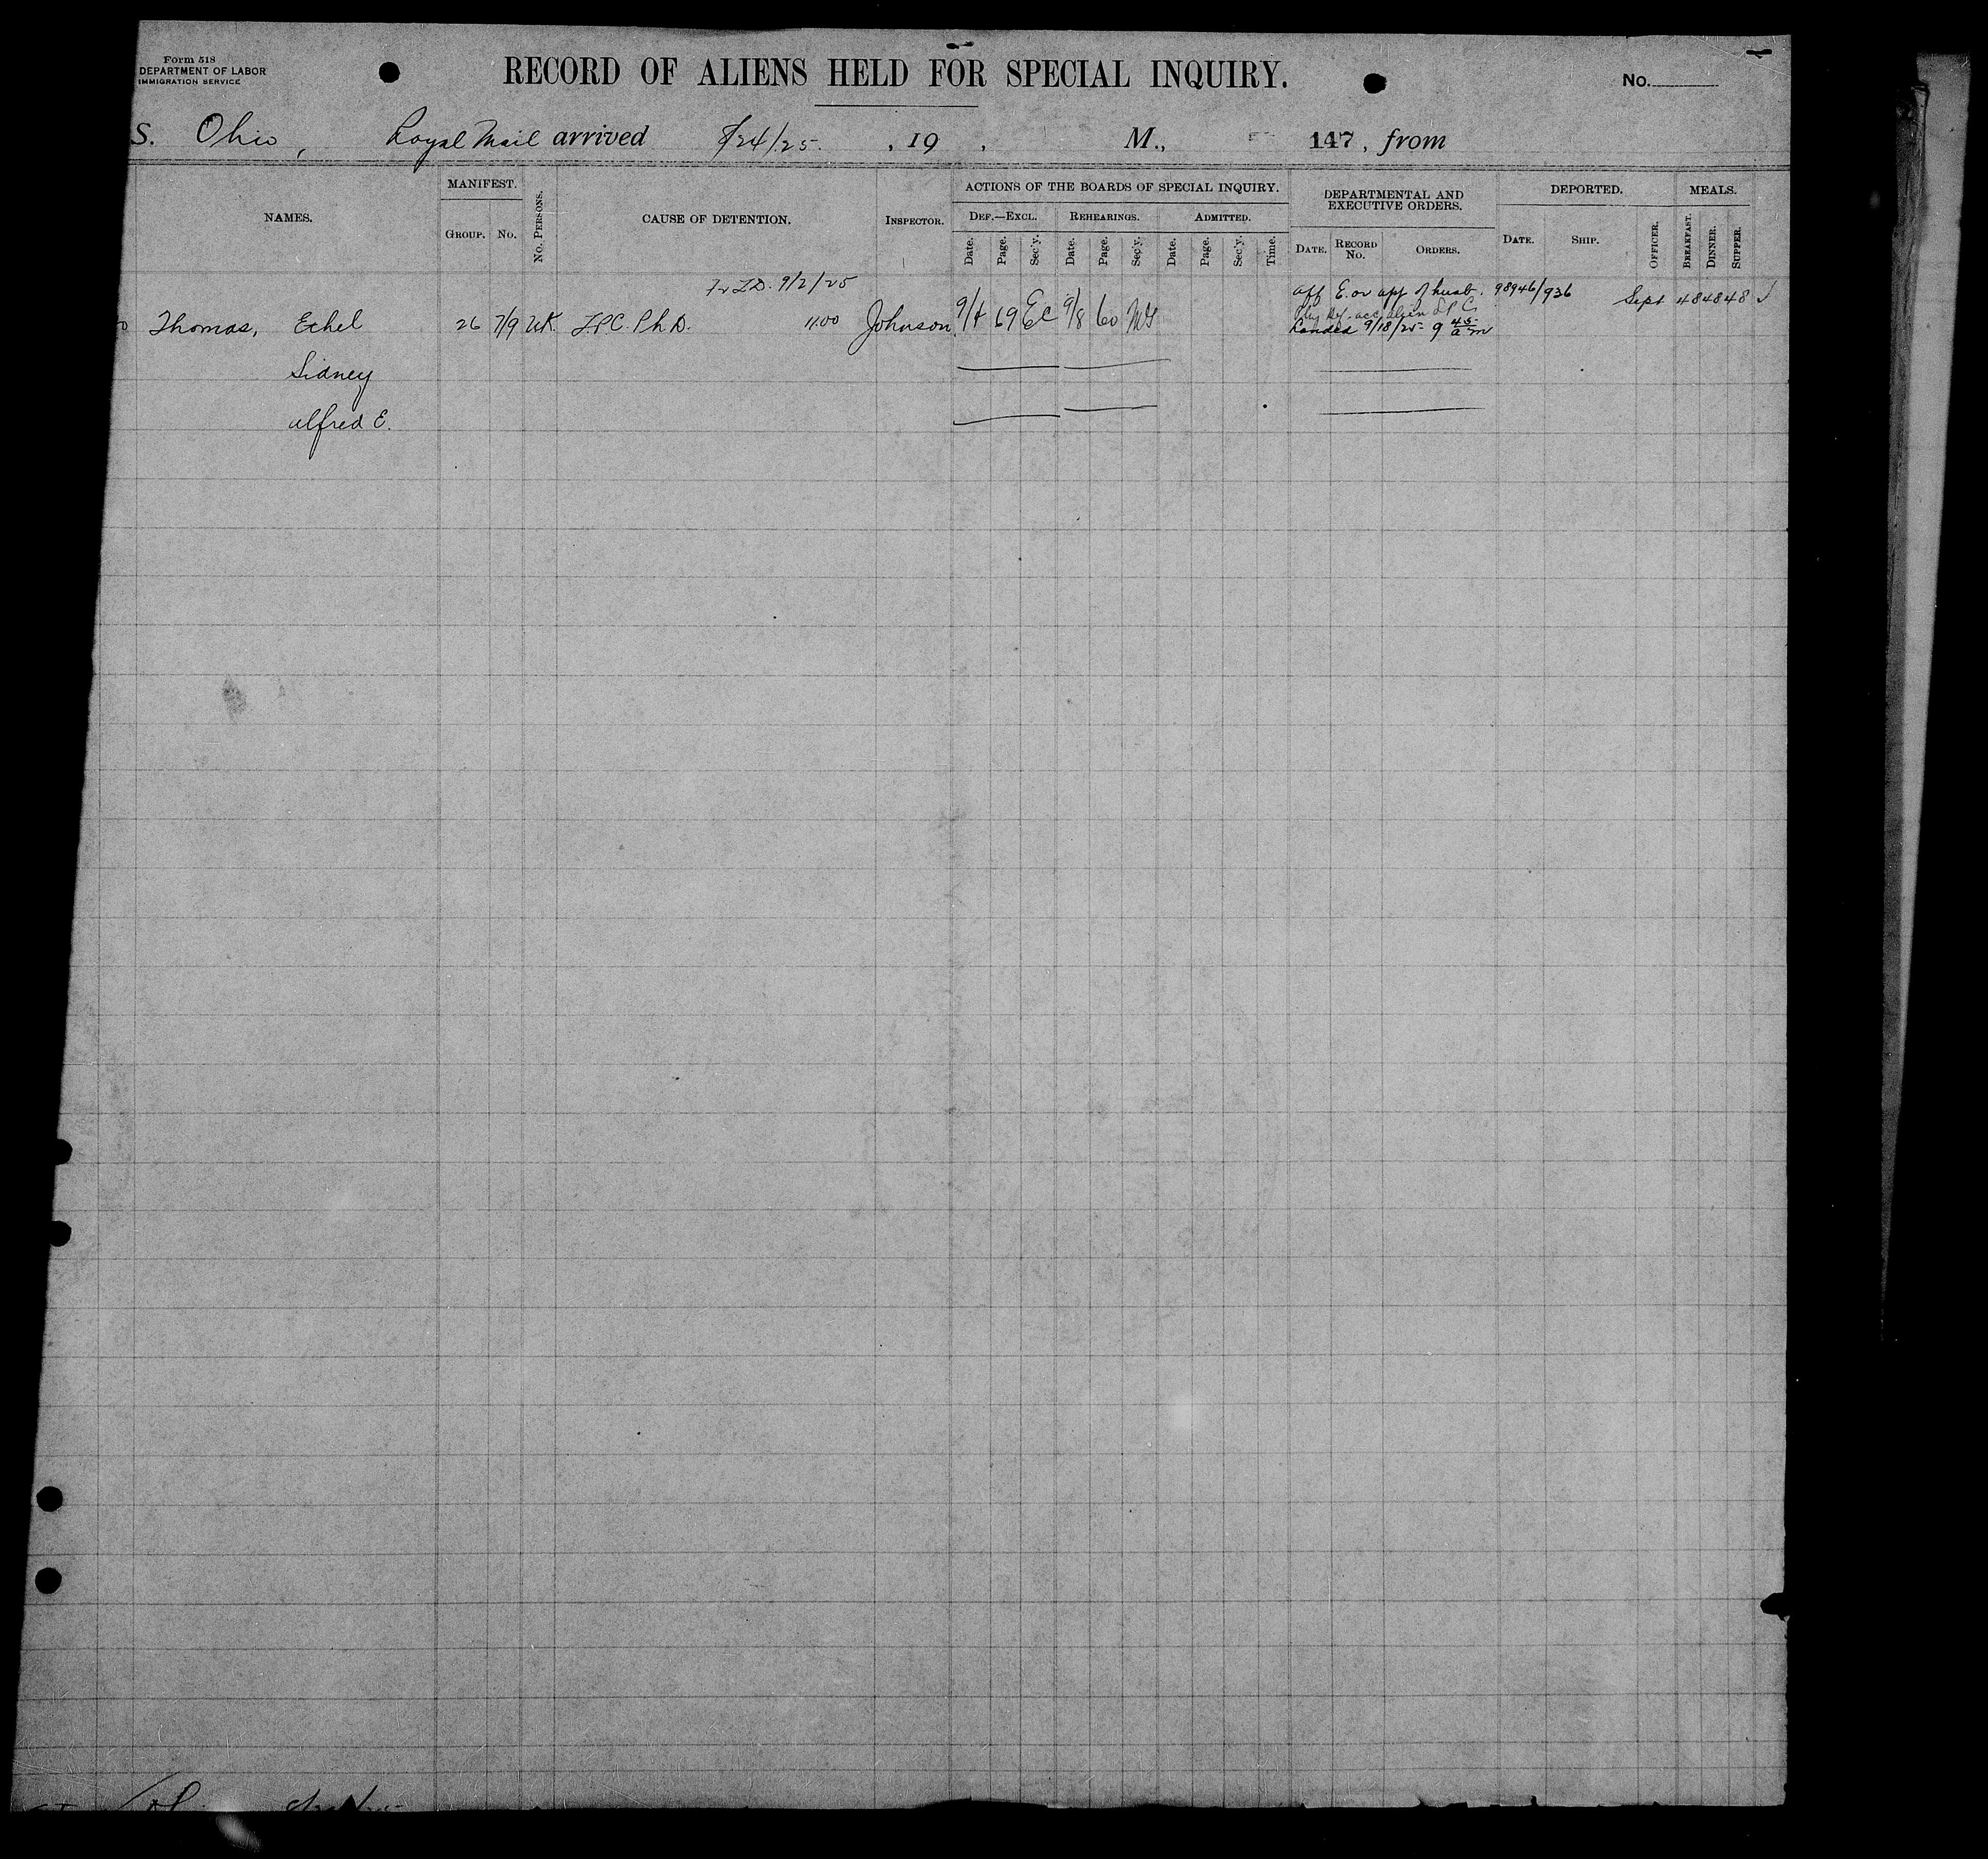 Form 518
DEPARTMENT OF LABOR
IMMIGRATION SERVICE
RECORD OF ALIENS HELD FOR SPECIAL INQUIRY.
No.
S. Ohio, Royal Mail arrived 8/24/25. , 19 , M., 147, from
NAMES.
MANIFEST.
GROUP. NO.
NO. PERSONS.
CAUSE OF DETENTION.
INSPECTOR.
ACTIONS OF THE BOARDS OF SPECIAL INQUIRY.
DEF.—EXCL. REHEARINGS. ADMITTED.
Date. Page. Sec'y. Date. Page. Sec'y. Date. Page. Sec'y. Time.
DEPARTMENTAL AND EXECUTIVE ORDERS.
DATE. RECORD NO. ORDERS.
DEPORTED.
DATE. SHIP. OFFICER.
MEALS.
BREAKFAST. DINNER. SUPPER.
9/2/25
Aff E. or app of husb. 98946/936
Thomas, Ethel 26 7/9 UK. LPC. Ph.D. 11.00 Johnson 9/4 69 EC 9/8 60 Sept 48 48 48 ✓
acc alien LPC
Landed 9/18/25 - 9 45 am
Sidney
Alfred E.